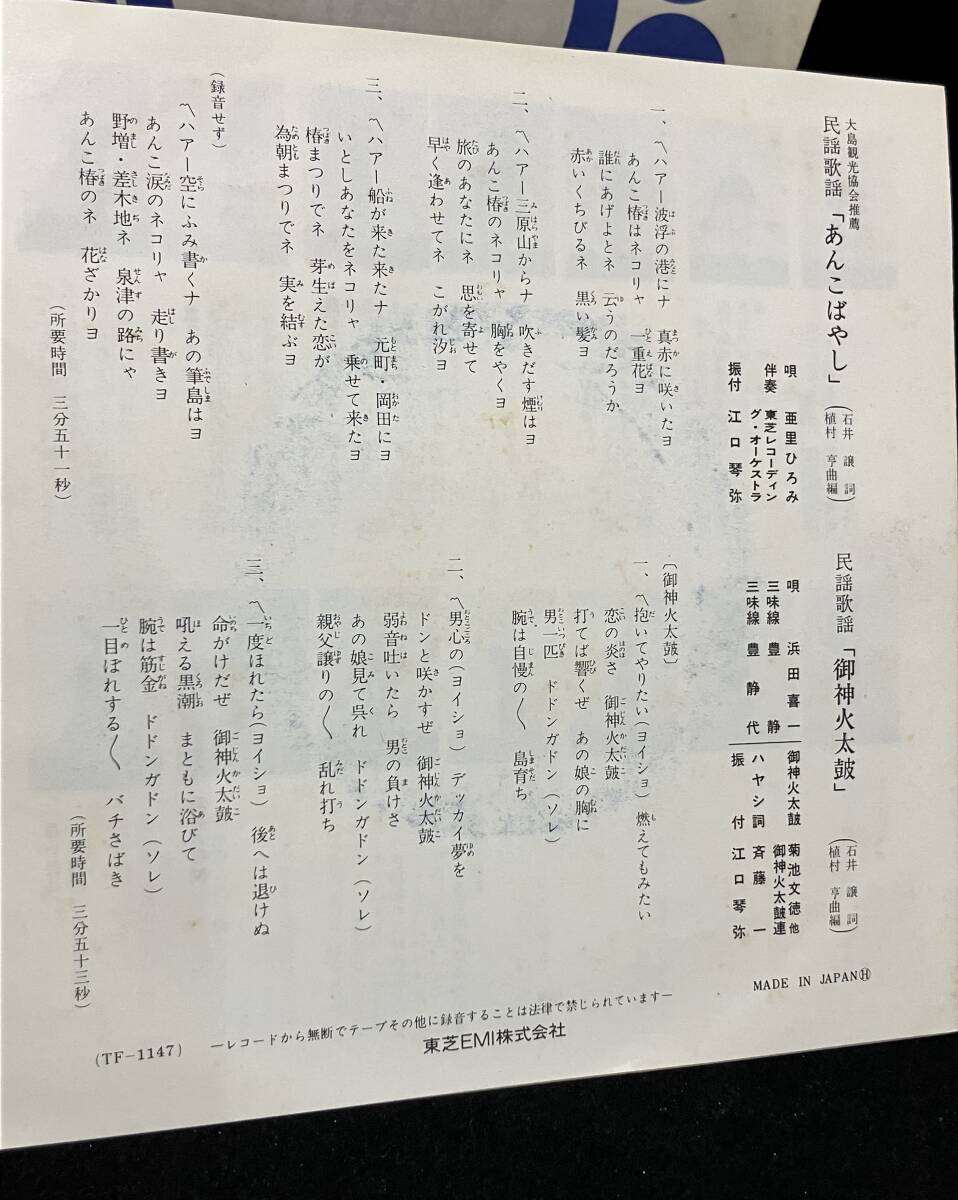 大島観光協会推薦
民謡歌謡「あんこばやし」
(石井 譲詞
植村 享曲編)
唄 亜里ひろみ
伴奏 東芝レコーディン
グ・オーケストラ
振付 江口琴弥
一、〽ハアー波浮の港にナ 真赤に咲いたヨ
あんこ椿はネコリャ 一重花ヨ
誰にあげよとネ 云うのだろうか
赤いくちびるネ 黒い髪ヨ
二、〽ハアー三原山からナ 吹きだす煙はヨ
あんこ椿のネコリャ 胸をやくヨ
旅のあなたにネ 思を寄せて
早く逢わせてネ こがれ汐ヨ
三、〽ハアー船が来た来たナ 元町・岡田にヨ
いとしあなたをネコリャ 乗せて来たヨ
椿まつりでネ 芽生えた恋が
為朝まつりでネ 実を結ぶヨ
(録音せず)
〽ハアー空にふみ書くナ あの筆島はヨ
あんこ涙のネコリャ 走り書きヨ
野増・差木地ネ 泉津の路にゃ
あんこ椿のネ 花ざかりヨ
(所要時間 三分五十一秒)
民謡歌謡「御神火太鼓」
(石井 譲詞
植村 享曲編)
唄 浜田喜一
三味線 豊静
三味線 豊静代
御神火太鼓 菊池文徳他
御神火太鼓連
ハヤシ詞 斉藤一
振付 江口琴弥
〔御神火太鼓〕
一、〽抱いてやりたい(ヨイショ) 燃えてもみたい
恋の炎さ 御神火太鼓
打てば響くぜ あの娘の胸に
男一匹 ドドンガドン(ソレ)
腕は自慢の〱 島育ち
二、〽男心の(ヨイショ) デッカイ夢を
ドンと咲かすぜ 御神火太鼓
弱音吐いたら 男の負けさ
あの娘見て呉れ ドドンガドン(ソレ)
親父譲りの〱 乱れ打ち
三、〽一度ほれたら(ヨイショ) 後へは退けぬ
命がけだぜ 御神火太鼓
吼える黒潮 まともに浴びて
腕は筋金 ドドンガドン(ソレ)
一目ぼれする〱 バチさばき
(所要時間 三分五十三秒)
MADE IN JAPANⒽ
—レコードから無断でテープその他に録音することは法律で禁じられています—
東芝EMI株式会社
(TF-1147)